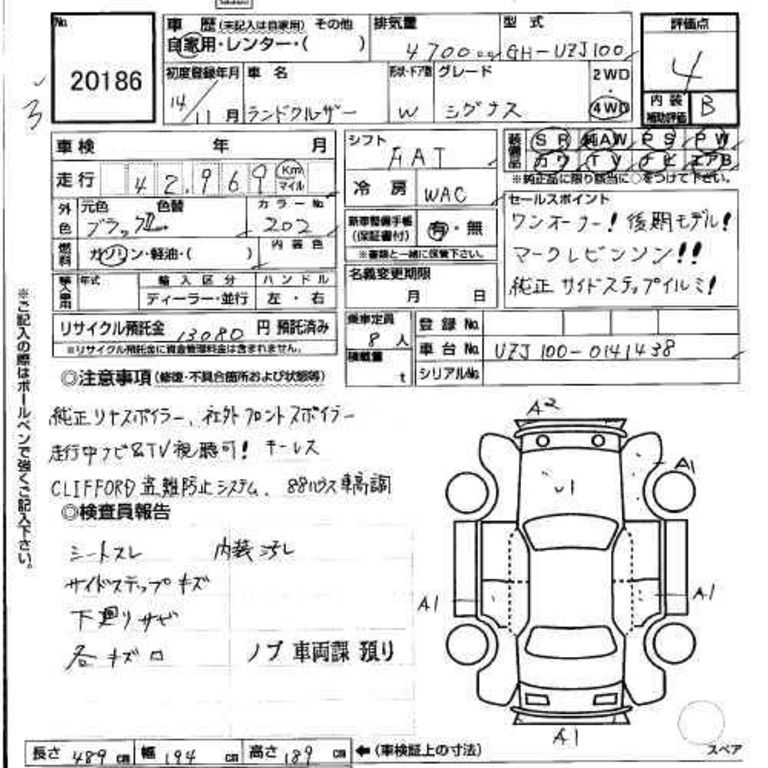 No. 20186
車歴 (未記入は自家用) その他
自家用・レンター・( )
排気量 4700cc
型式 GH-UZJ100
評価点 4
初度登録年月 14/11月
車名 ランドクルーザー
形状・ドア数 W
グレード シグナス
2WD・4WD
内装補助評価 B
車検 年 月
走行 42,969 Km マイル
外色 元色 色替 ブラック
カラーNo. 202
燃料 ガソリン・軽油・( )
内装色
輸入車用 年式 輸入区分 ハンドル
ディーラー・並行 左・右
リサイクル預託金 13080 円 預託済み
※リサイクル預託金に資金管理料金は含まれません。
シフト FAT
冷房 WAC
新車整備手帳 (保証書付) 有・無
※書類と一緒に保管下さい。
名義変更期限
月 日
乗車定員 8人
積載量 t
装備品 SR 純AW PS PW
カワ TV ナビ エアB
※純正品に限り該当に○をつけて下さい。
セールスポイント
ワンオーナー! 後期モデル!
マークレビンソン!!
純正サイドステップイルミ!
登録No.
車台No. UZJ100-0141438
シリアルNo.
◎注意事項 (修復・不具合箇所および状態等)
純正リヤスポイラー、社外フロントスポイラー
走行中ナビ&TV視聴可! キーレス
CLIFFORD 盗難防止システム、88ハウス車高調
◎検査員報告
シートスレ 内装汚れ
サイドステップキズ
下廻りサビ
各キズロ
ノブ 車両課 預り
A2
A1
U1
A1
A1
A1
スペア
長さ 489cm 幅 194cm 高さ 189cm ←(車検証上の寸法)
※ご記入の際はボールペンで強くご記入下さい。